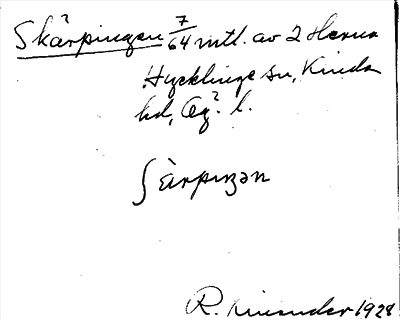 Skärpingen 7/64 mtl. av 2 Herus
Hycklinge sn, Kinda
hd, Ög. l.
ʃärpiŋən
R. Kinander 1928